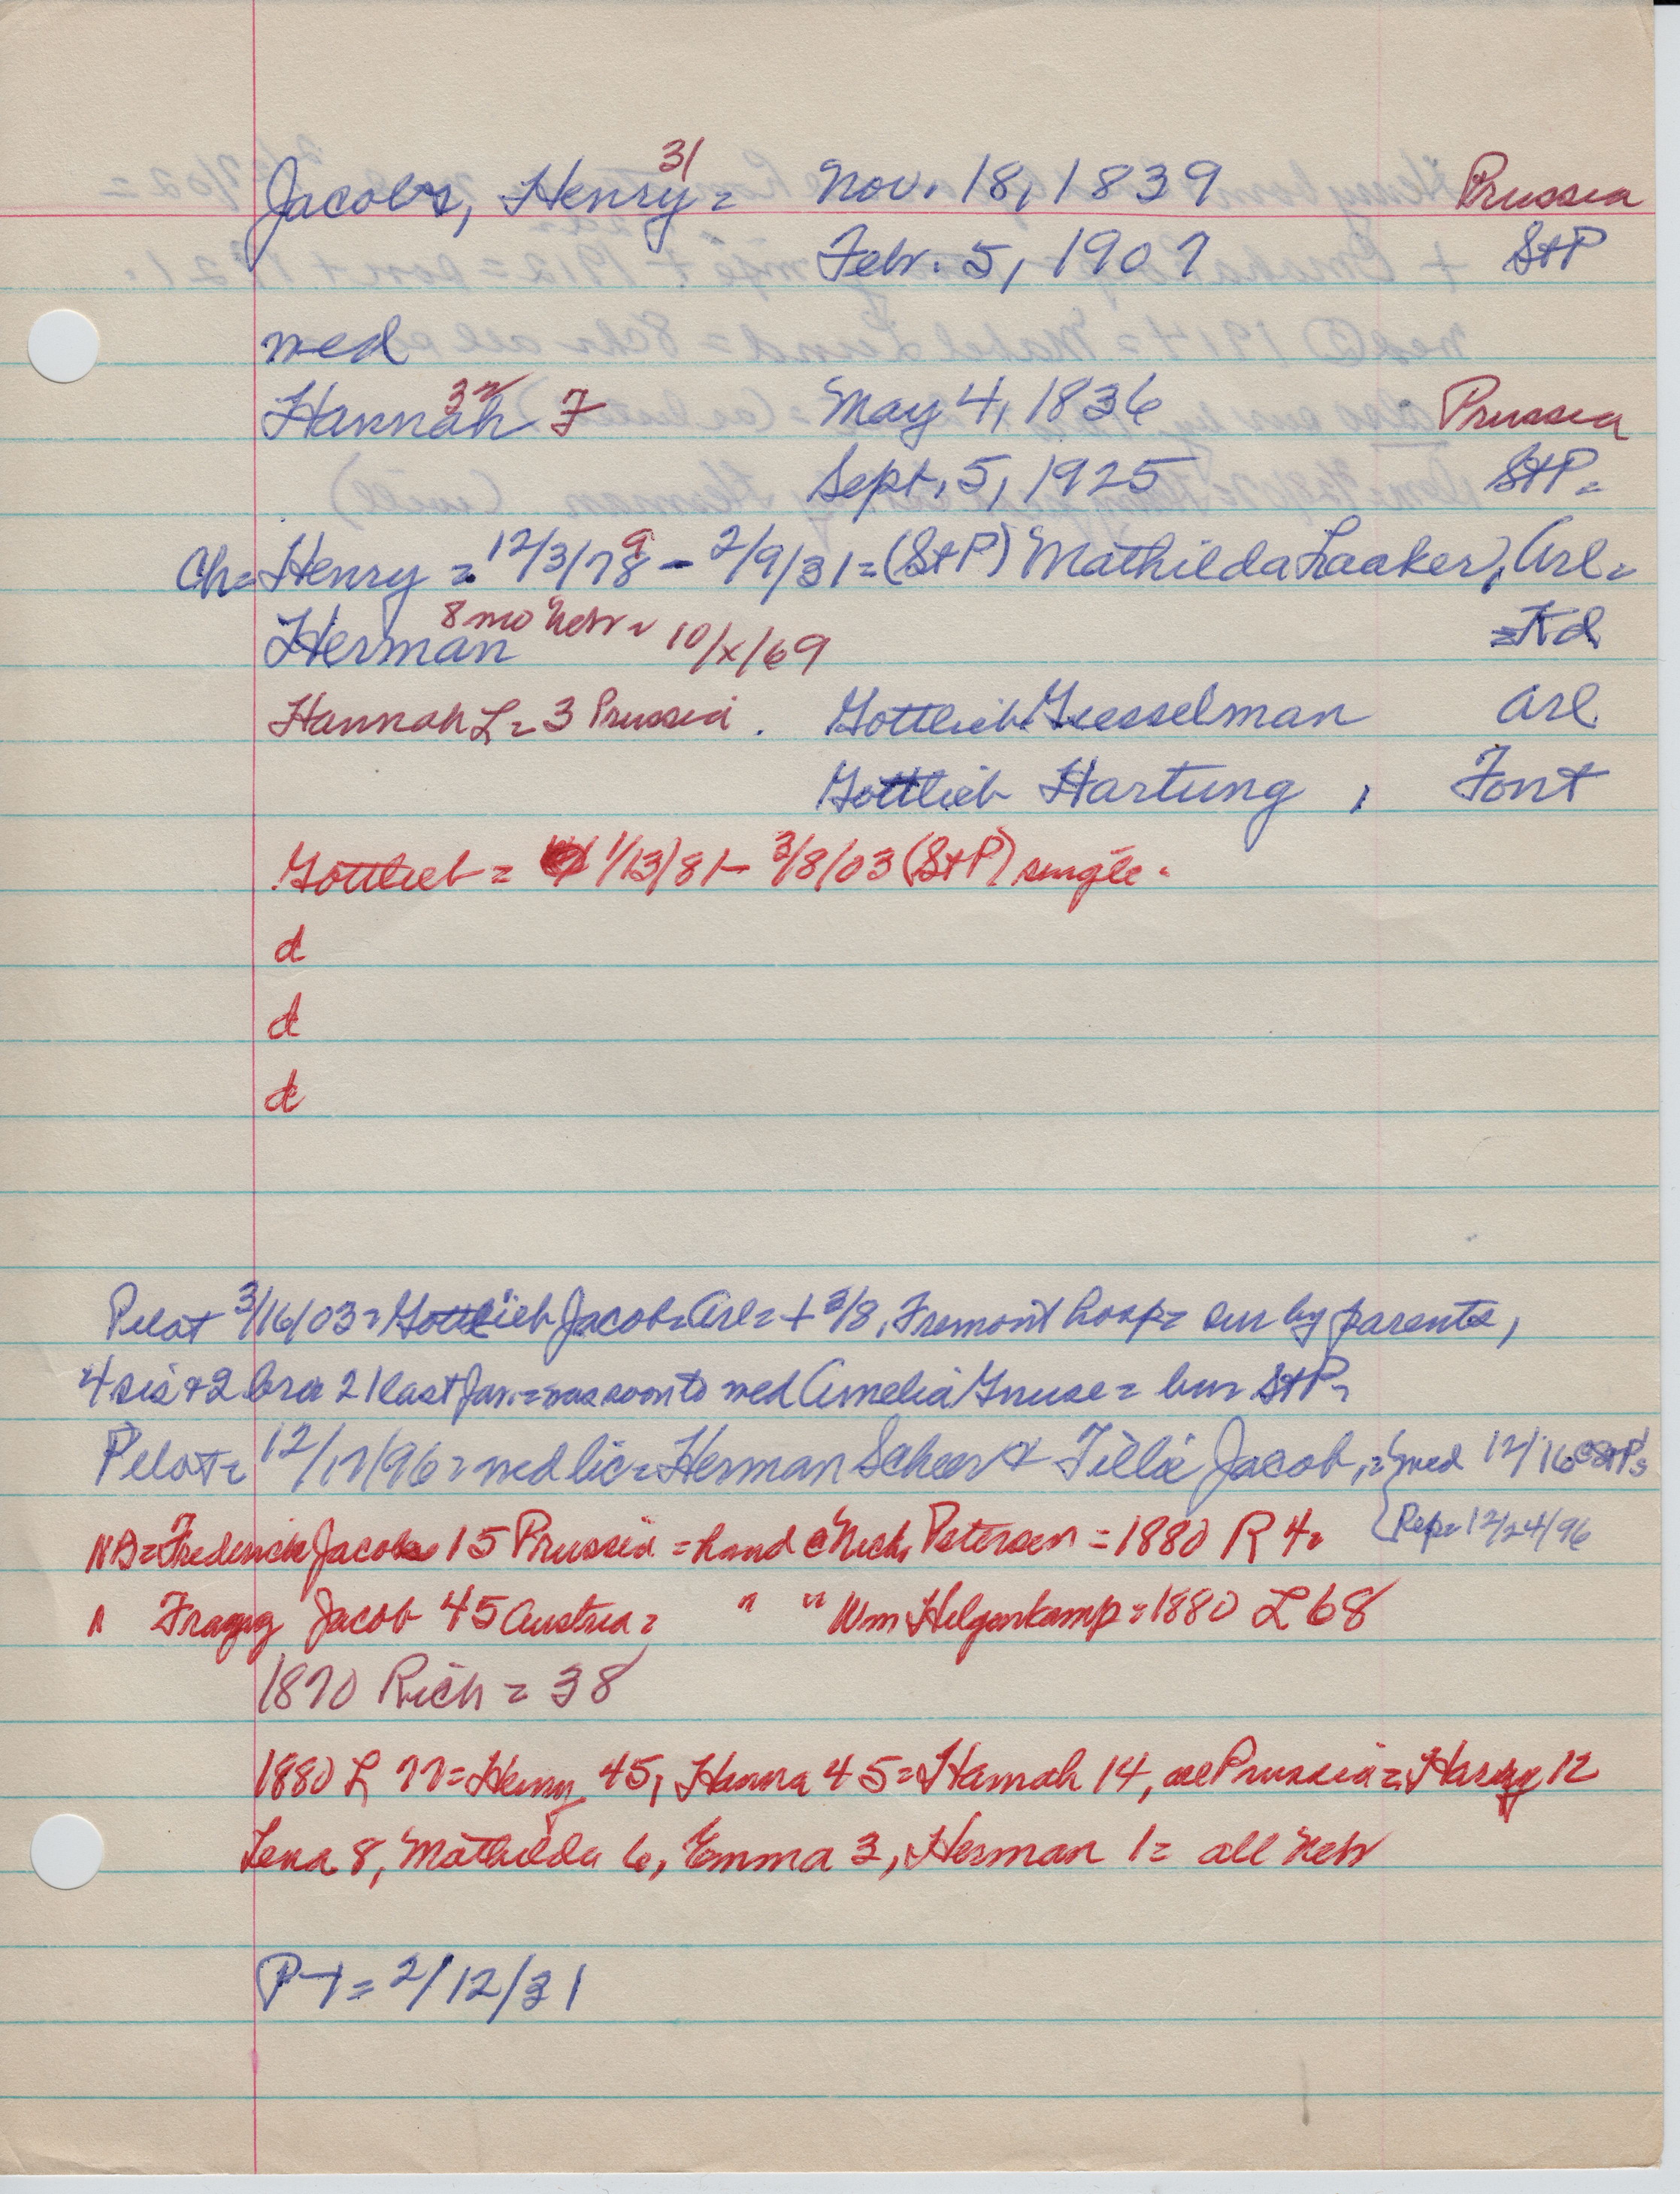 Jacobs, Henry 31 = Nov. 18, 1839 Prussia
Febr. 5, 1907 StP
med
Hannah 32 F May 4, 1836 Prussia
Sept. 5, 1925 StP =
Ch = Henry = 12/3/78 9 - 2/9/31 = (StP) Mathilda Laaker, Arl =
Herman 8 mo Nebr = 10/x/69 = Kd
Hannah L = 3 Prussia . Gottlieb Giesselman Arl
Gottlieb Hartung , Font
Gottlieb = 1/13/81 - 3/8/03 (StP) single .
d
d
d
Pilot 3/16/03 = Gottlieb Jacob = Arl = + 3/8, Fremont hosp = sur by parents,
4 sis + 2 bro 21 last Jan. = was soon to med Amelia Gnuse = bur StP =
Pilot = 12/17/96 = med lic = Herman Scheer & Tillie Jacob, = { med 12/16 @ StP
NB = Frederick Jacob 15 Prussia = hand c Nich. Petersen = 1880 R 4 = Rep = 12/24/96
" Jacob 45 Austria = " " Wm Hilgenkamp = 1880 L 68
1870 Rich = 38
1880 L 77 = Henry 45, Hanna 45 = Hannah 14, all Prussia = Harry 12
Lena 8, Mathilda 6, Emma 3, Herman 1 = all Nebr
PT = 2/12/31